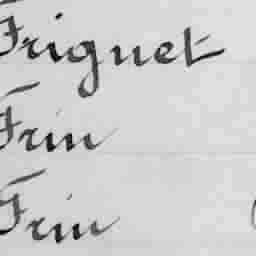 Friguet
Frin
Frin